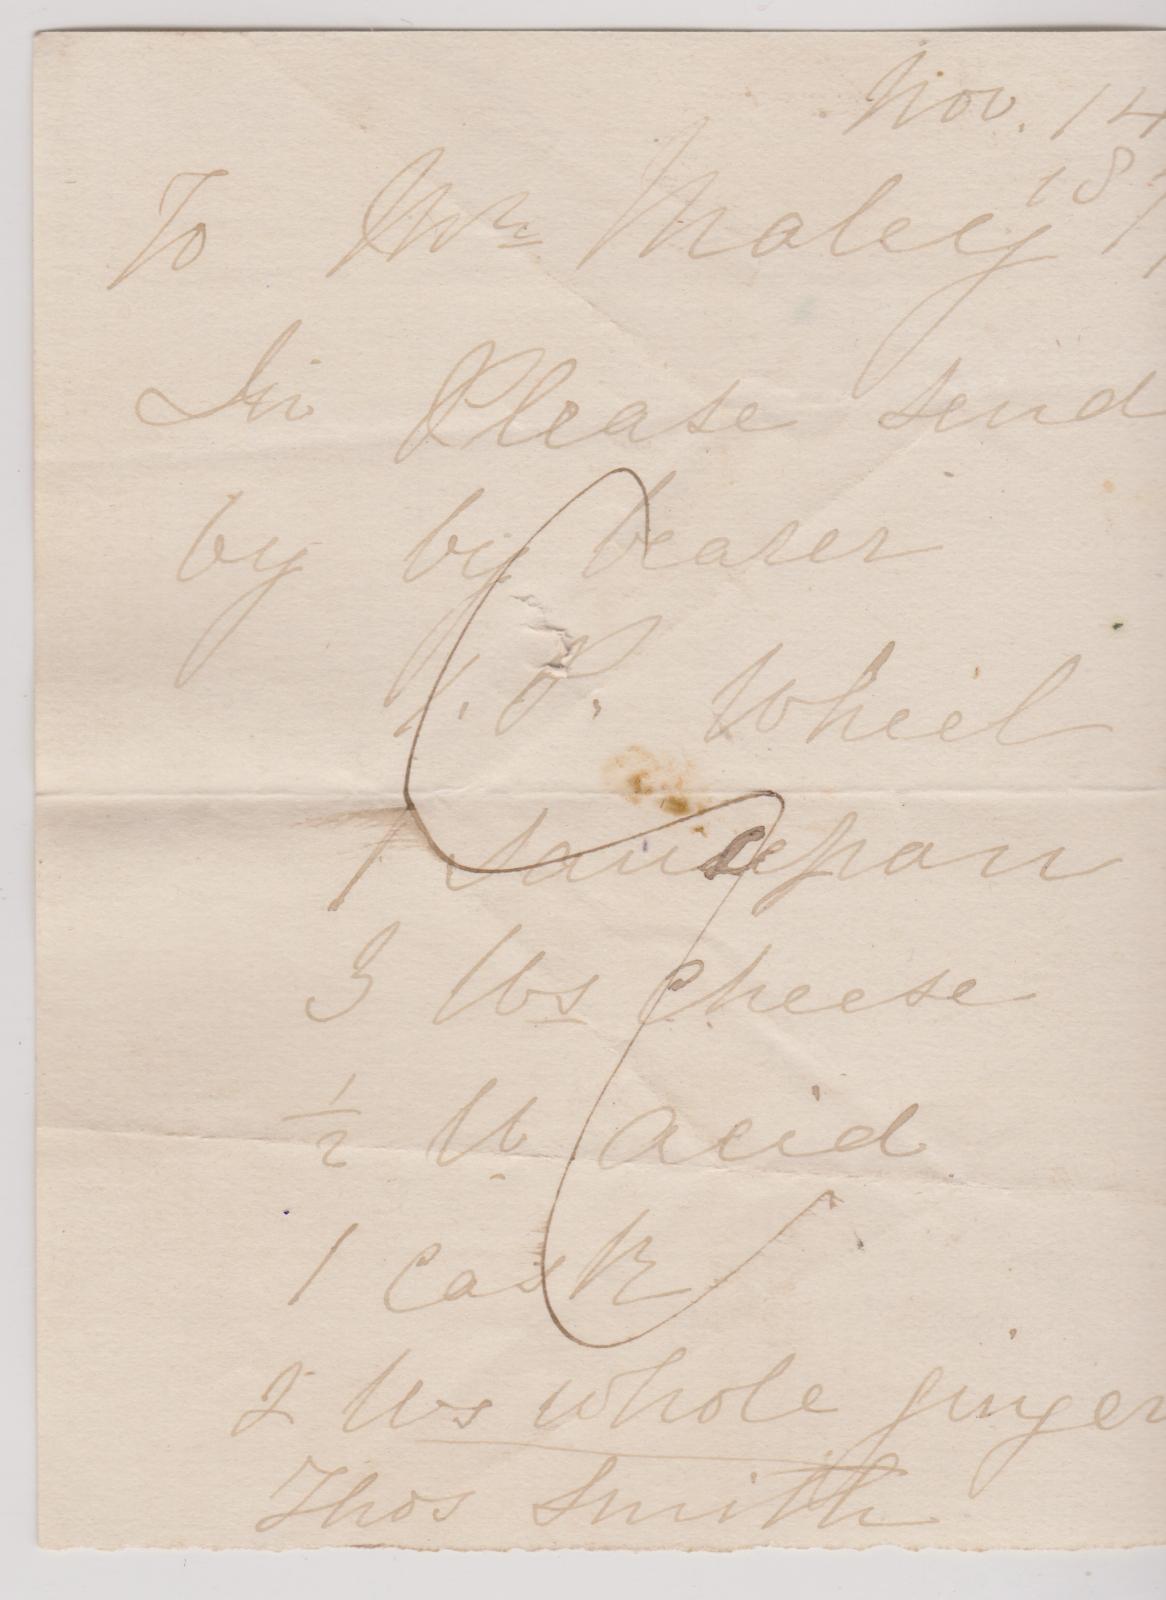 Nov. 14
187
To Mr Maley
Sir Please send
by by bearer
1. P. Wheel
1 Saucepan
3 lbs Cheese
1/2 lb acid
1 Cask
2 lbs whole ginger
Thos Smith